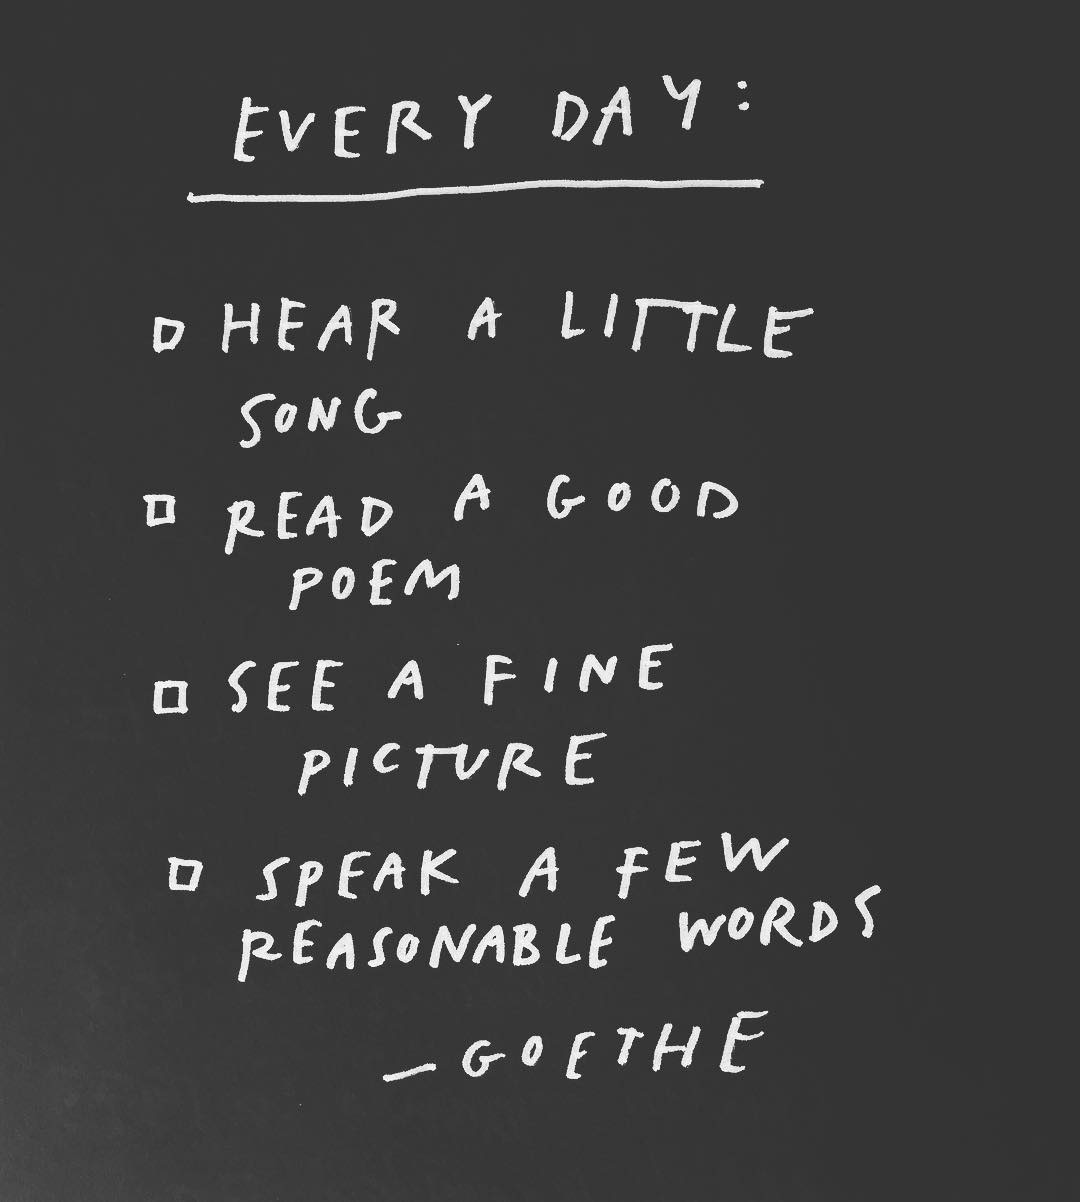 EVERY DAY:
HEAR A LITTLE
SONG
READ A GOOD
POEM
SEE A FINE
PICTURE
SPEAK A FEW
REASONABLE WORDS
—GOETHE